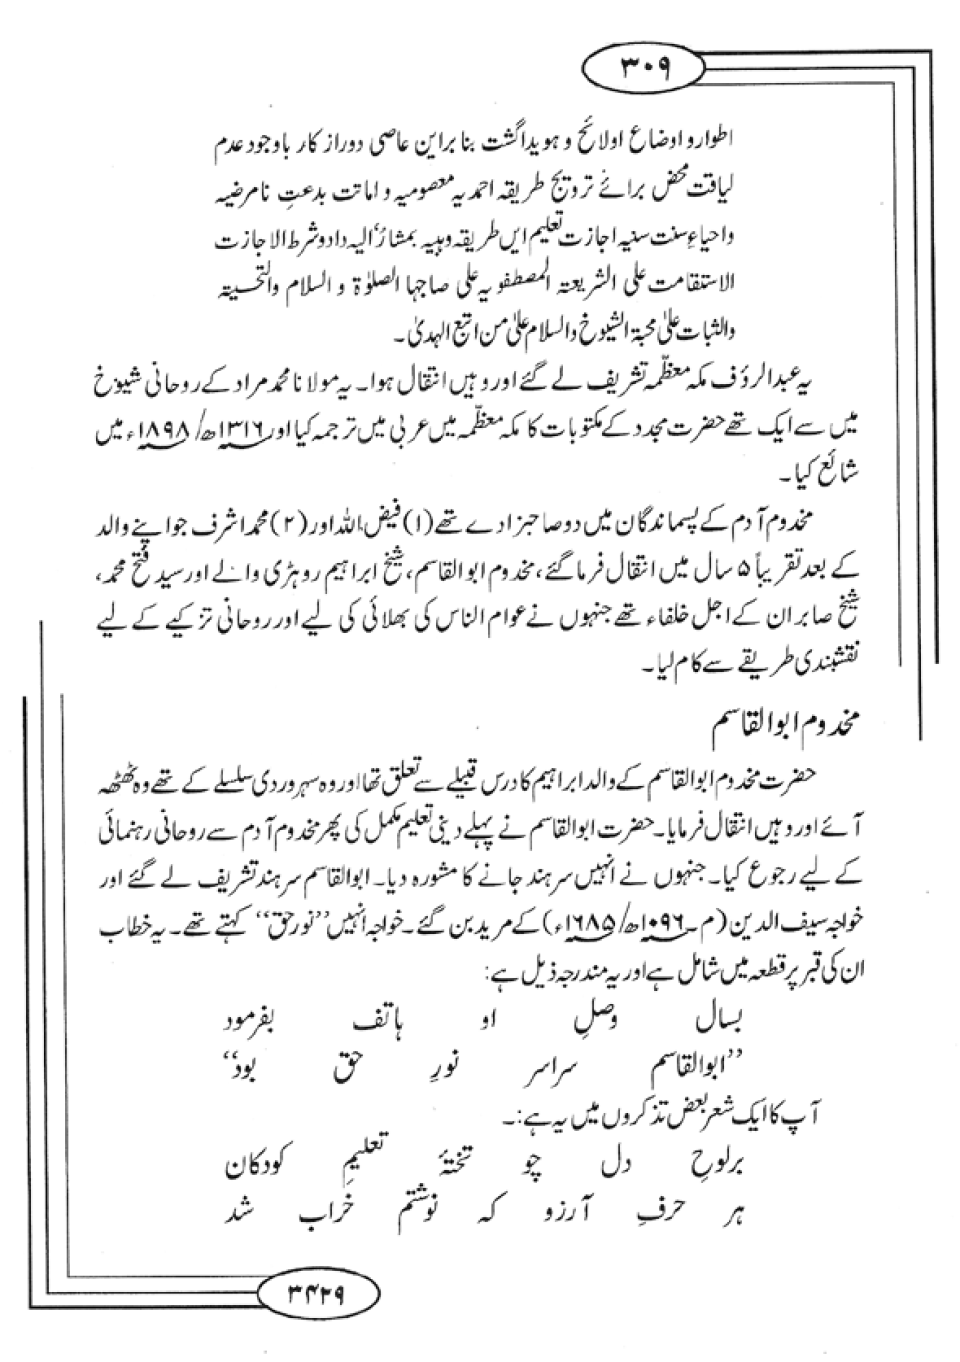 ۳۰۹
اطوار و اوضاع او لائح و ہویدا گشت بنا براین عاصی دور از کار باوجود عدم
لیاقت محض برائے ترویج طریقہ احمدیہ معصومیہ و اماتت بدعتِ نامرضیہ
و احیاءِ سنت سنیہ اجازت تعلیم ایں طریقہ وہبیہ بمشارٌ الیہ داد و شرط الاجازت
الاستقامت علی الشریعتہ المصطفویہ علی صاحبہا الصلوٰۃ و السلام والتحیتہ
والثبات علیٰ محبۃ الشیوخ والسلام علیٰ من اتبع الہدیٰ۔
یہ عبدالرؤف مکہ معظّمہ تشریف لے گئے اور وہیں انتقال ہوا۔ یہ مولانا محمد مراد کے روحانی شیوخ
میں سے ایک تھے حضرت مجدد کے مکتوبات کا مکہ معظّمہ میں عربی میں ترجمہ کیا اور ۱۳۱۶ھ/۱۸۹۸ء میں
شائع کیا۔
مخدوم آدم کے پسماندگان میں دو صاحبزادے تھے (۱) فیض اللہ اور (۲) محمد اشرف جو اپنے والد
کے بعد تقریباً ۵ سال میں انتقال فرما گئے، مخدوم ابوالقاسم، شیخ ابراہیم روہڑی والے اور سید فتح محمد،
شیخ صابر ان کے اجل خلفاء تھے جنہوں نے عوام الناس کی بھلائی کی لیے اور روحانی تزکیے کے لیے
نقشبندی طریقے سے کام لیا۔
مخدوم ابوالقاسم
حضرت مخدوم ابوالقاسم کے والد ابراہیم کا درس قبیلے سے تعلق تھا اور وہ سہروردی سلسلے کے تھے وہ ٹھٹھہ
آئے اور وہیں انتقال فرمایا۔ حضرت ابوالقاسم نے پہلے دینی تعلیم مکمل کی پھر مخدوم آدم سے روحانی رہنمائی
کے لیے رجوع کیا۔ جنہوں نے انہیں سرہند جانے کا مشورہ دیا۔ ابوالقاسم سرہند تشریف لے گئے اور
خواجہ سیف الدین (م۔۱۰۹۶ھ/۱۶۸۵ء) کے مرید بن گئے۔ خواجہ انہیں ”نور حق“ کہتے تھے۔ یہ خطاب
ان کی قبر پر قطعہ میں شامل ہے اور یہ مندرجہ ذیل ہے:
بسال وصلِ او ہاتف بفرمود
”ابوالقاسم سراسر نورِ حق بود“
آپ کا ایک شعر بعض تذکروں میں یہ ہے:۔
برلوحِ دل چو تختۂ تعلیمِ کودکان
ہر حرفِ آرزو کہ نوشتم خراب شد
۳۴۲۹